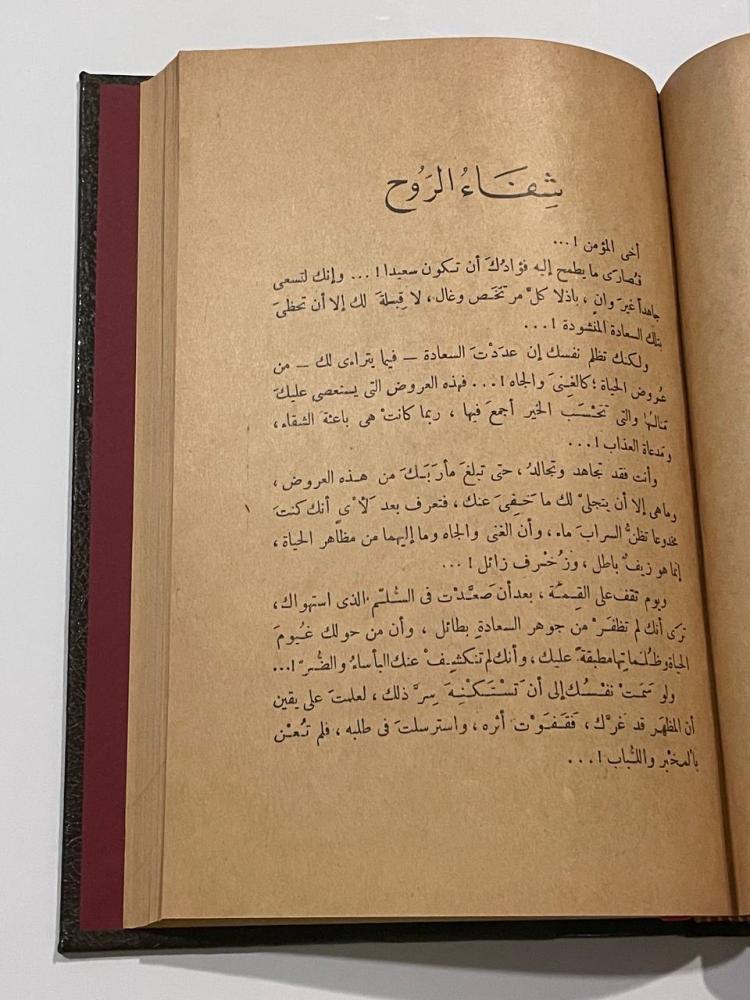 شِفَاءُ الرَوُح
أخى المؤمن !...
قُصارَى ما يطمح إليه فؤادُكَ أن تكون سعيدا !... وإنك لتسعى
جاهداً غيرَ وانٍ ، باذلا كلَّ مرتَخَص وغال ، لا قِبلةَ لك إلا أن تحظىَ
بتلك السعادة المنشودة !...
ولكنك تظلم نفسك إن عدَدْتَ السعادة — فيما يتراءى لك — من
عُروض الحياة ؛ كالغِنىَ والجاه !... فهذه العروض التى يستعصى عليكَ
منالُها والتى تحْسَب الخير أجمعَ فيها ، ربما كانتْ هى باعثةَ الشقاء ،
ومَدعاة العذاب !...
وأنت فقد تجاهد وتجالدُ ، حتى تبلغَ مأرَبَكَ من هذه العروض ،
وما هى إلا أن يتجلىَّ لك ما خَفِىَ عنك ، فتعرف بعد لَأْىٍ أنك كنتَ
مخدوعا تظنُّ السرابَ ماء ، وأن الغنى والجاه وما إليهما من مظاهر الحياة ،
إنما هو زيفٌ باطل ، وزُخْرف زائل !...
ويوم تقف على القِمَّة ، بعد أن صَعَّدْت فى السُّلّم الذى استهواك ،
ترَى أنك لم تظفَرْ من جوهر السعادة بطائل ، وأن من حولك غُيومَ
الحياة وظُلُماتِها مطبقةً عليك ، وأنك لم تنكشِفْ عنك البأساءُ والضُّرّ !...
ولو سَمَتْ نفسُك إلى أن تَسْتَكْنِهَ سِرَّ ذلك ، لعلمتَ على يقين
أن المظهَر قد غرَّك ، فَقَفَوْتَ أثره ، واسترسلتَ فى طلبه ، فلم تُعْنَ
بالمخْبر واللُّباب !...